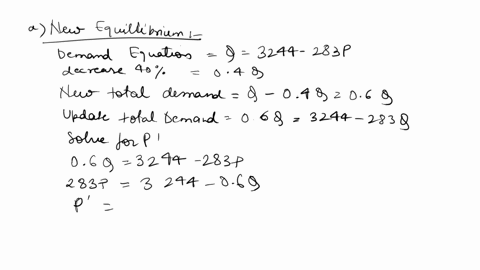 a) New Equillibrium:-
Demand Equation = Q = 3244 - 283P
decrease 40% = 0.4Q
New total demand = Q - 0.4Q = 0.6Q
Update total Demand = 0.6Q = 3244 - 283Q
Solve for P'
0.6Q = 3244 - 283P
283P = 3244 - 0.6Q
P' =